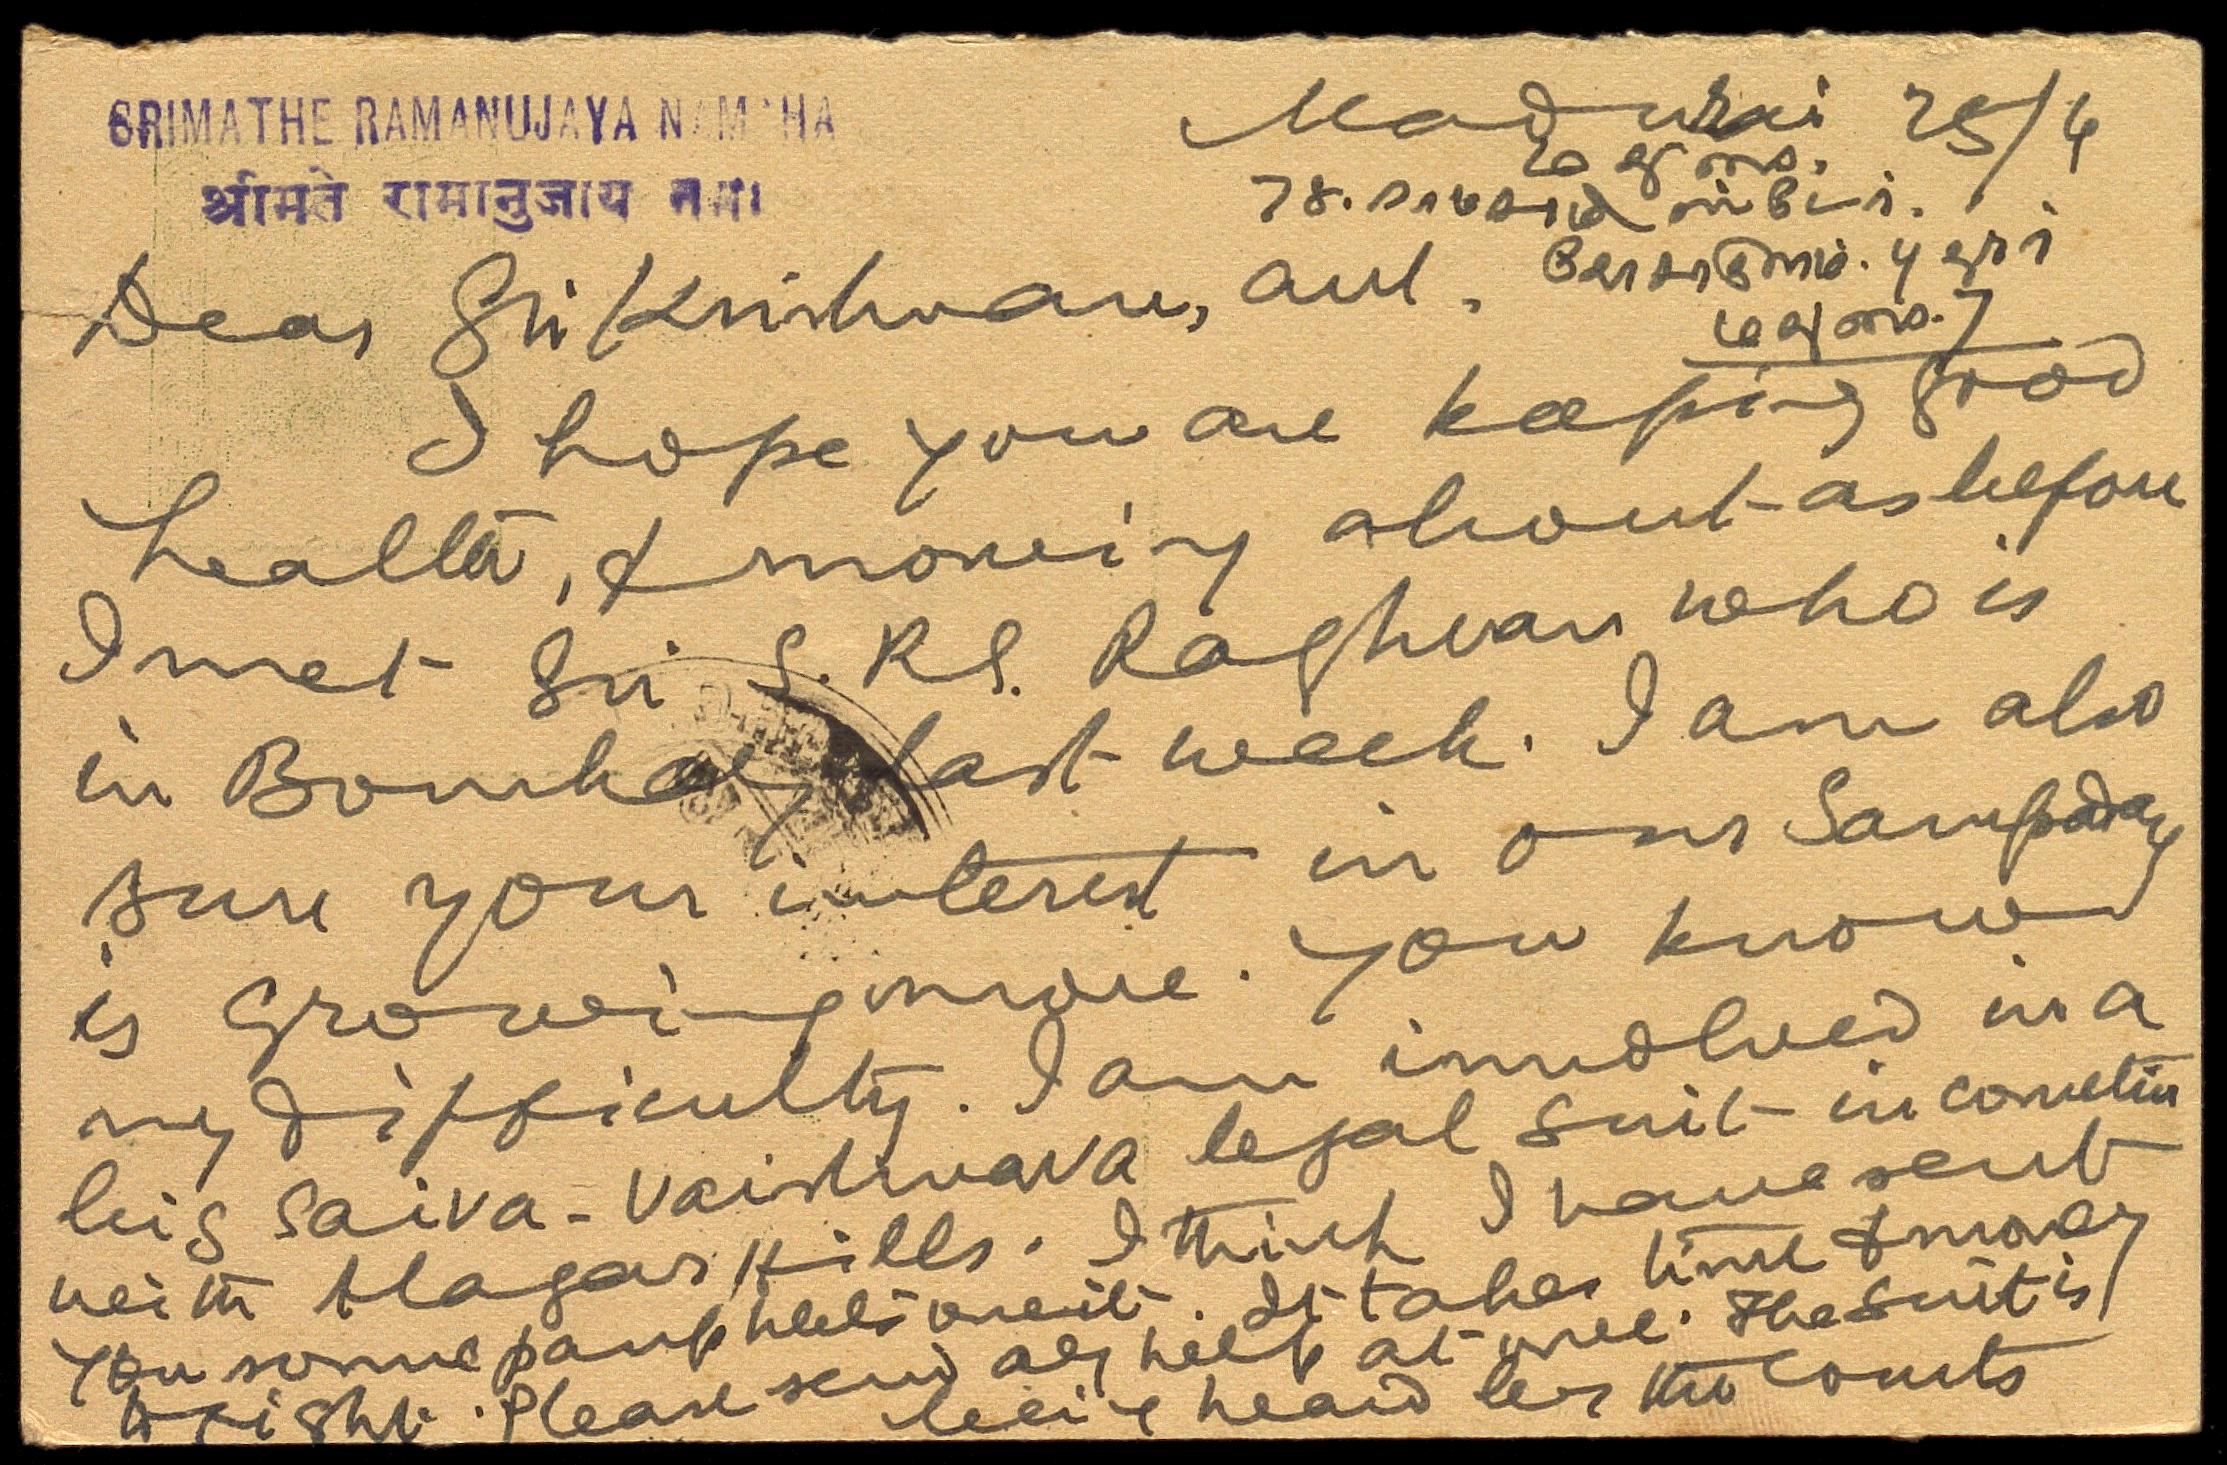 SRIMATHE RAMANUJAYA NAM HA
श्रीमते रामानुजाय नमः
Madurai 25/4
மதுரை.
78.
மதுரை. 7
Dear Sri Krishnan, avl.
I hope you are keeping good
health, & moving about as before
I met Sri S. R. S. Raghvan who is
in Bombay last week. I am also
sure your interest in our Sampraday
is growing more. You know
my difficulty. I am involved in a
big Saiva-Vaishnava legal suit in connection
with Alagar Hills. I think I have sent
you some pamphlets on it. It takes time & money
Please send help at once. The suit is
being heard by the Courts